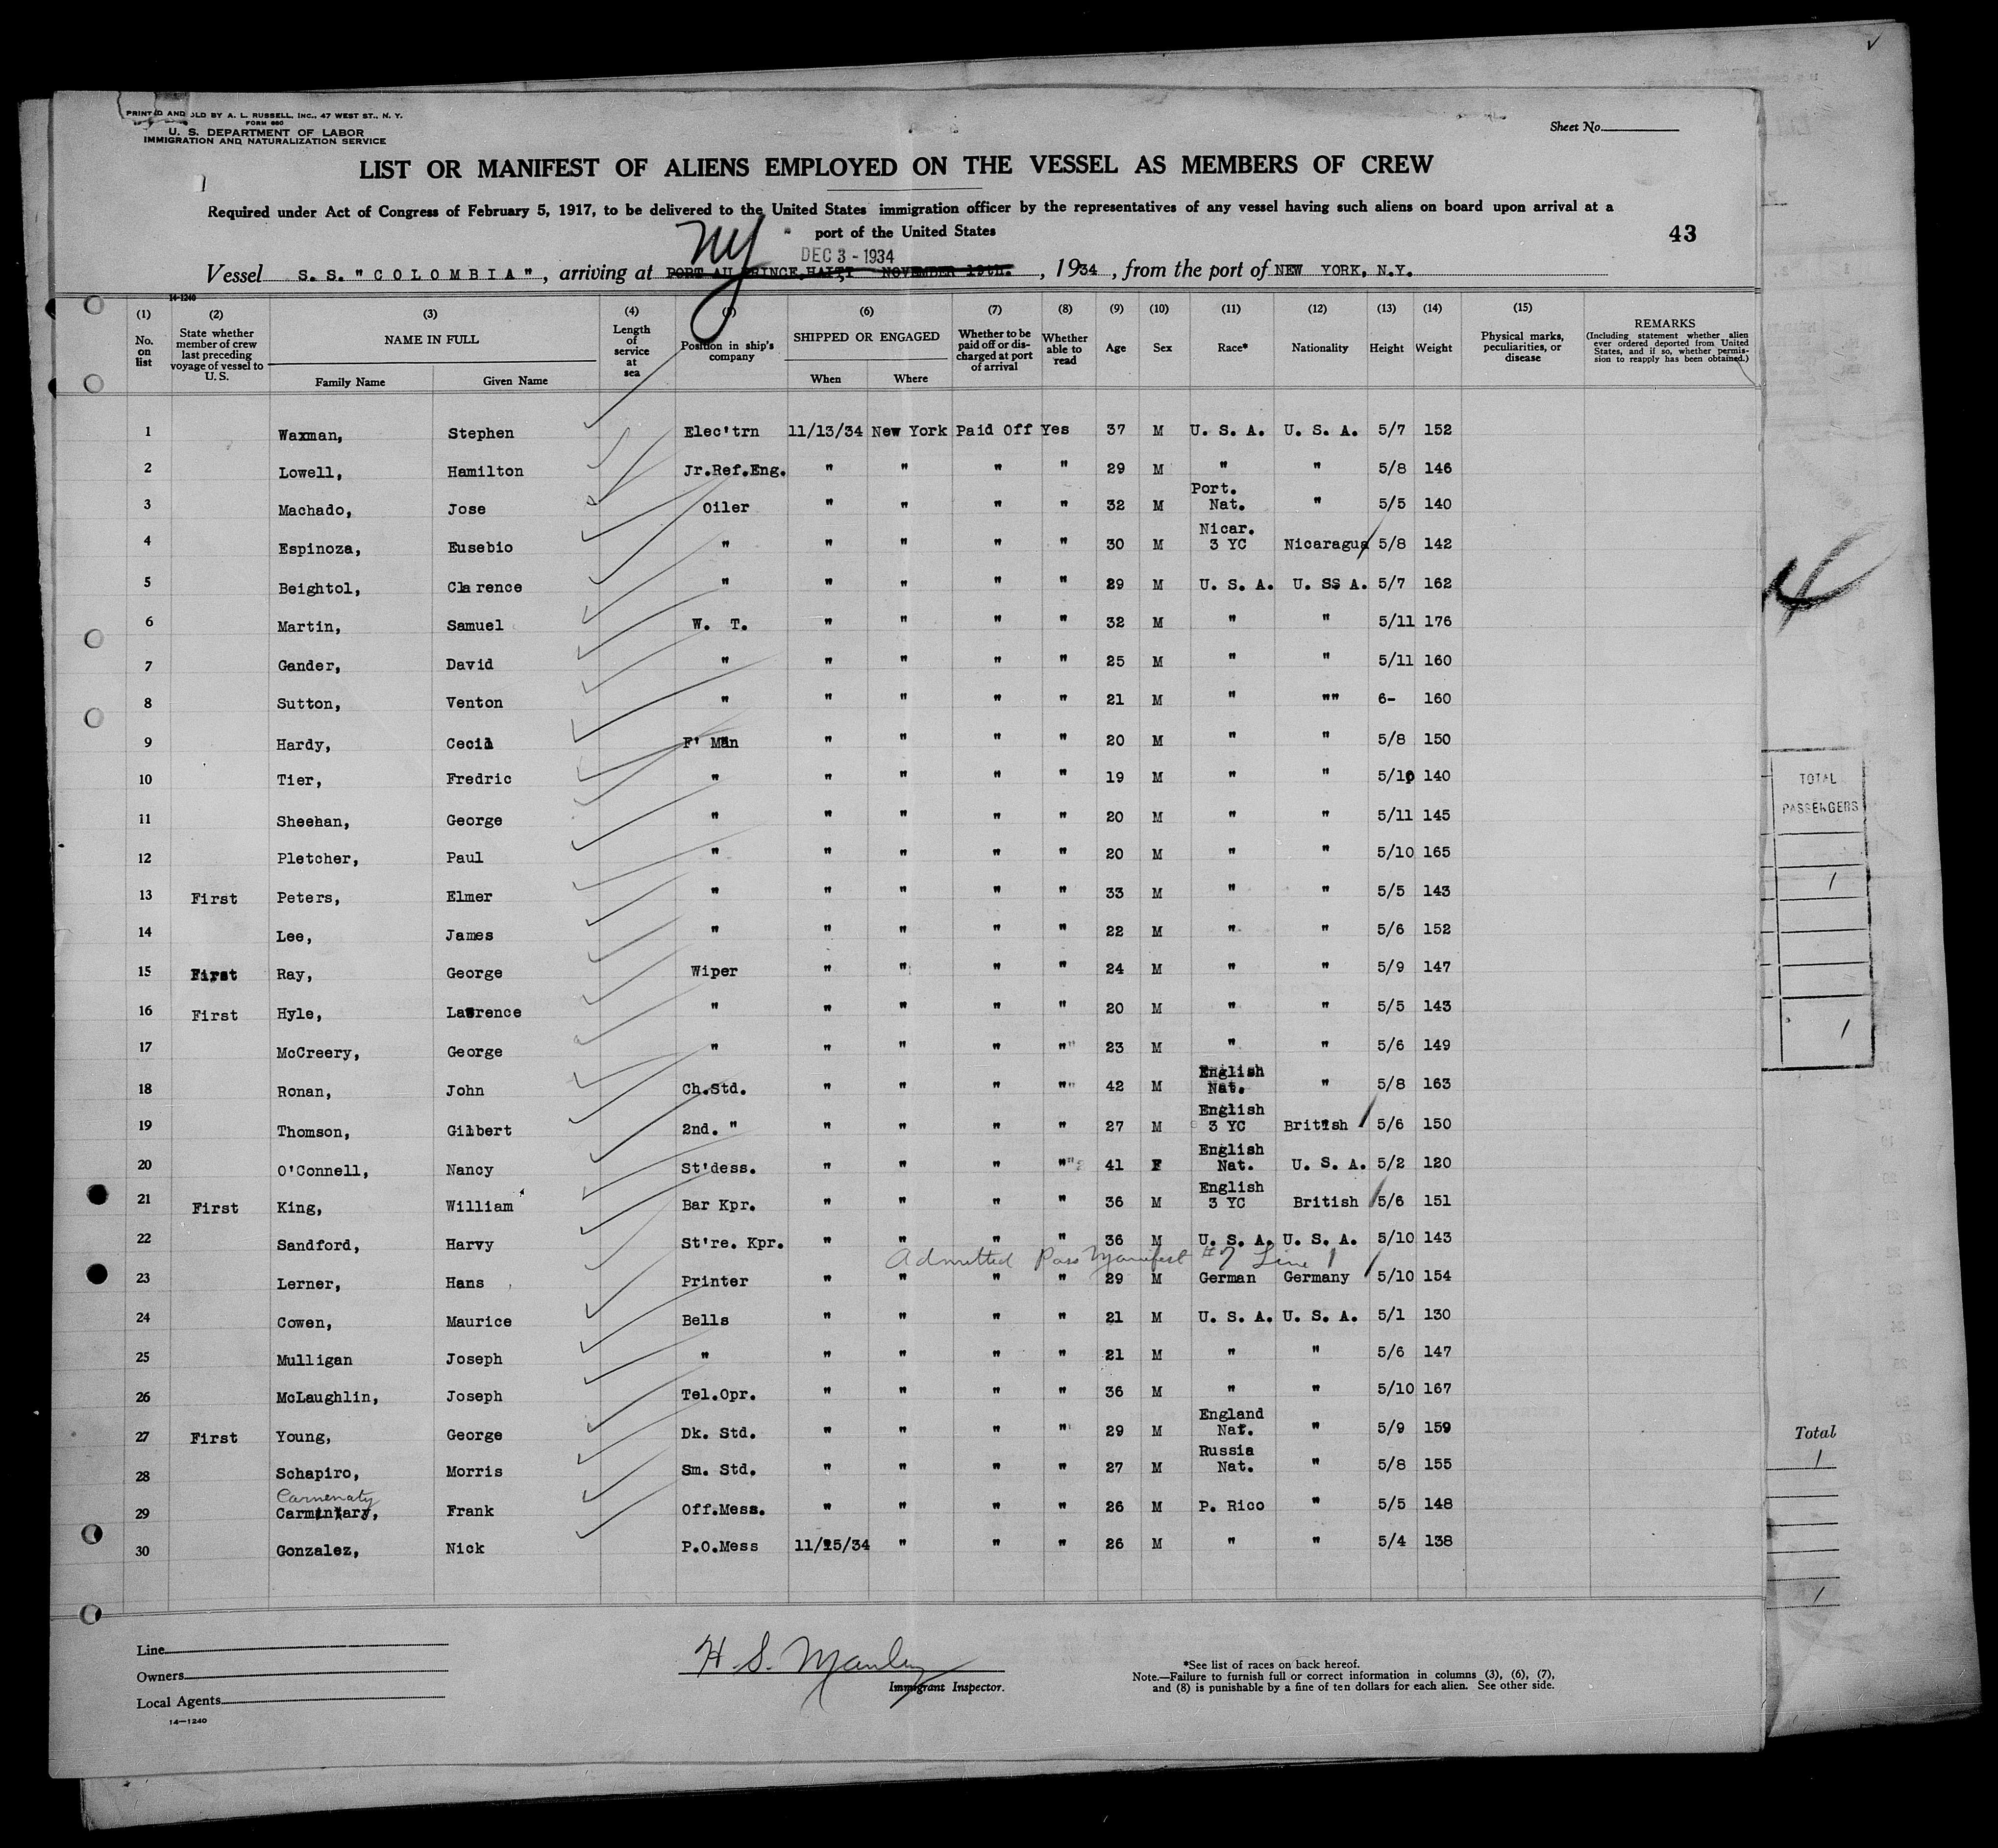 PRINTED AND SOLD BY A. L. RUSSELL, INC., 47 WEST ST., N. Y.
FORM 680
U. S. DEPARTMENT OF LABOR
IMMIGRATION AND NATURALIZATION SERVICE
Sheet No.
LIST OR MANIFEST OF ALIENS EMPLOYED ON THE VESSEL AS MEMBERS OF CREW
Required under Act of Congress of February 5, 1917, to be delivered to the United States immigration officer by the representatives of any vessel having such aliens on board upon arrival at a
port of the United States
43
NY
DEC 3 - 1934
Vessel S.S. "COLOMBIA", arriving at PORT AU PRINCE, HAITI NOVEMBER 19th., 1934, from the port of NEW YORK, N.Y.
14-1240
(1) No. on list (2) State whether member of crew last preceding voyage of vessel to U. S. (3) NAME IN FULL Family Name Given Name (4) Length of service at sea Position in ship's company (6) SHIPPED OR ENGAGED When Where (7) Whether to be paid off or discharged at port of arrival (8) Whether able to read (9) Age (10) Sex (11) Race* (12) Nationality (13) Height (14) Weight (15) Physical marks, peculiarities, or disease REMARKS (Including statement whether alien ever ordered deported from United States, and if so, whether permission to reapply has been obtained.)
1 Waxman, Stephen Elec'trn 11/13/34 New York Paid Off Yes 37 M U. S. A. U. S. A. 5/7 152
2 Lowell, Hamilton Jr.Ref.Eng. " " " " 29 M " " 5/8 146
3 Machado, Jose Oiler " " " " 32 M Port. Nat. " 5/5 140
4 Espinoza, Eusebio " " " " " 30 M Nicar. 3 YC Nicaragua 5/8 142
5 Beightol, Clarence " " " " " 29 M U. S. A. U. SS A. 5/7 162
6 Martin, Samuel W. T. " " " " 32 M " " 5/11 176
7 Gander, David " " " " " 25 M " " 5/11 160
8 Sutton, Venton " " " " " 21 M " "" 6- 160
9 Hardy, Cecil F' Man " " " " 20 M " " 5/8 150
10 Tier, Fredric " " " " " 19 M " " 5/10 140
11 Sheehan, George " " " " 20 M " " 5/11 145
12 Pletcher, Paul " " " " " 20 M " " 5/10 165
13 First Peters, Elmer " " " " " 33 M " " 5/5 143
14 Lee, James " " " " " 22 M " " 5/6 152
15 First Ray, George Wiper " " " " 24 M " " 5/9 147
16 First Hyle, Lawrence " " " " " 20 M " " 5/5 143
17 McCreery, George " " " " " 23 M " " 5/6 149
18 Ronan, John Ch.Std. " " " " 42 M English Nat. " 5/8 163
19 Thomson, Gilbert 2nd. " " " " " 27 M English 3 YC British 5/6 150
20 O'Connell, Nancy St'dess. " " " " 41 F English Nat. U. S. A. 5/2 120
21 First King, William Bar Kpr. " " " " 36 M English 3 YC British 5/6 151
22 Sandford, Harvy St're. Kpr. " " 36 M U. S. A. U. S. A. 5/10 143
Admitted Pass Manifest #7 Line 1
23 Lerner, Hans Printer " " " " 29 M German Germany 5/10 154
24 Cowen, Maurice Bells " " " " 21 M U. S. A. U. S. A. 5/1 130
25 Mulligan Joseph " " " " " 21 M " " 5/6 147
26 McLaughlin, Joseph Tel.Opr. " " " " 36 M " " 5/10 167
27 First Young, George Dk. Std. " " " " 29 M England Nat. " 5/9 159
28 Schapiro, Morris Sm. Std. " " " " 27 M Russia Nat. " 5/8 155
Carnenaty
29 Carmintary, Frank Off.Mess. " " " " 26 M P. Rico " 5/5 148
30 Gonzalez, Nick P.O.Mess 11/15/34 " " " 26 M " " 5/4 138
TOTAL
PASSENGERS
1
1
Total
1
1
Line
Owners
Local Agents
14-1240
H. S. Manley
Immigrant Inspector.
*See list of races on back hereof.
Note.—Failure to furnish full or correct information in columns (3), (6), (7),
and (8) is punishable by a fine of ten dollars for each alien. See other side.